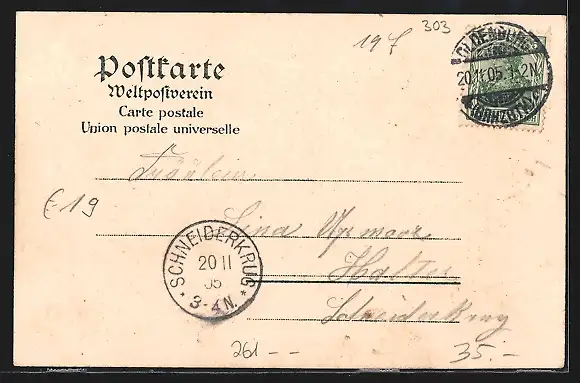 303
19 f
OLDENBURG
20.11.05.1-2N
(GRHZGTM)
Postkarte
Weltpostverein
Carte postale
Union postale universelle
Fräulein
€ 19
Lina
Halter
Schneiderkrug
SCHNEIDERKRUG
20 11
05
* 3-4N. *
261 - -
35.-